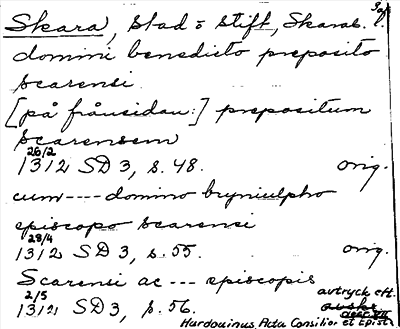 Skara, stad o stift, Skarab. l.
domini benedicto preposito
scarensi
[på frånsidan:] prepositum
scarensem
26/2
1312 SD 3, s. 48. orig.
cum ---- domino bryniulpho
episcopo scarensi
28/4
1312 SD 3, s. 55. orig.
Scarensi ac --- episcopis
2/5 avtryck eft.
1312 SD 3, s. 56.
Harduinus, Acta Consilior. et Epist.